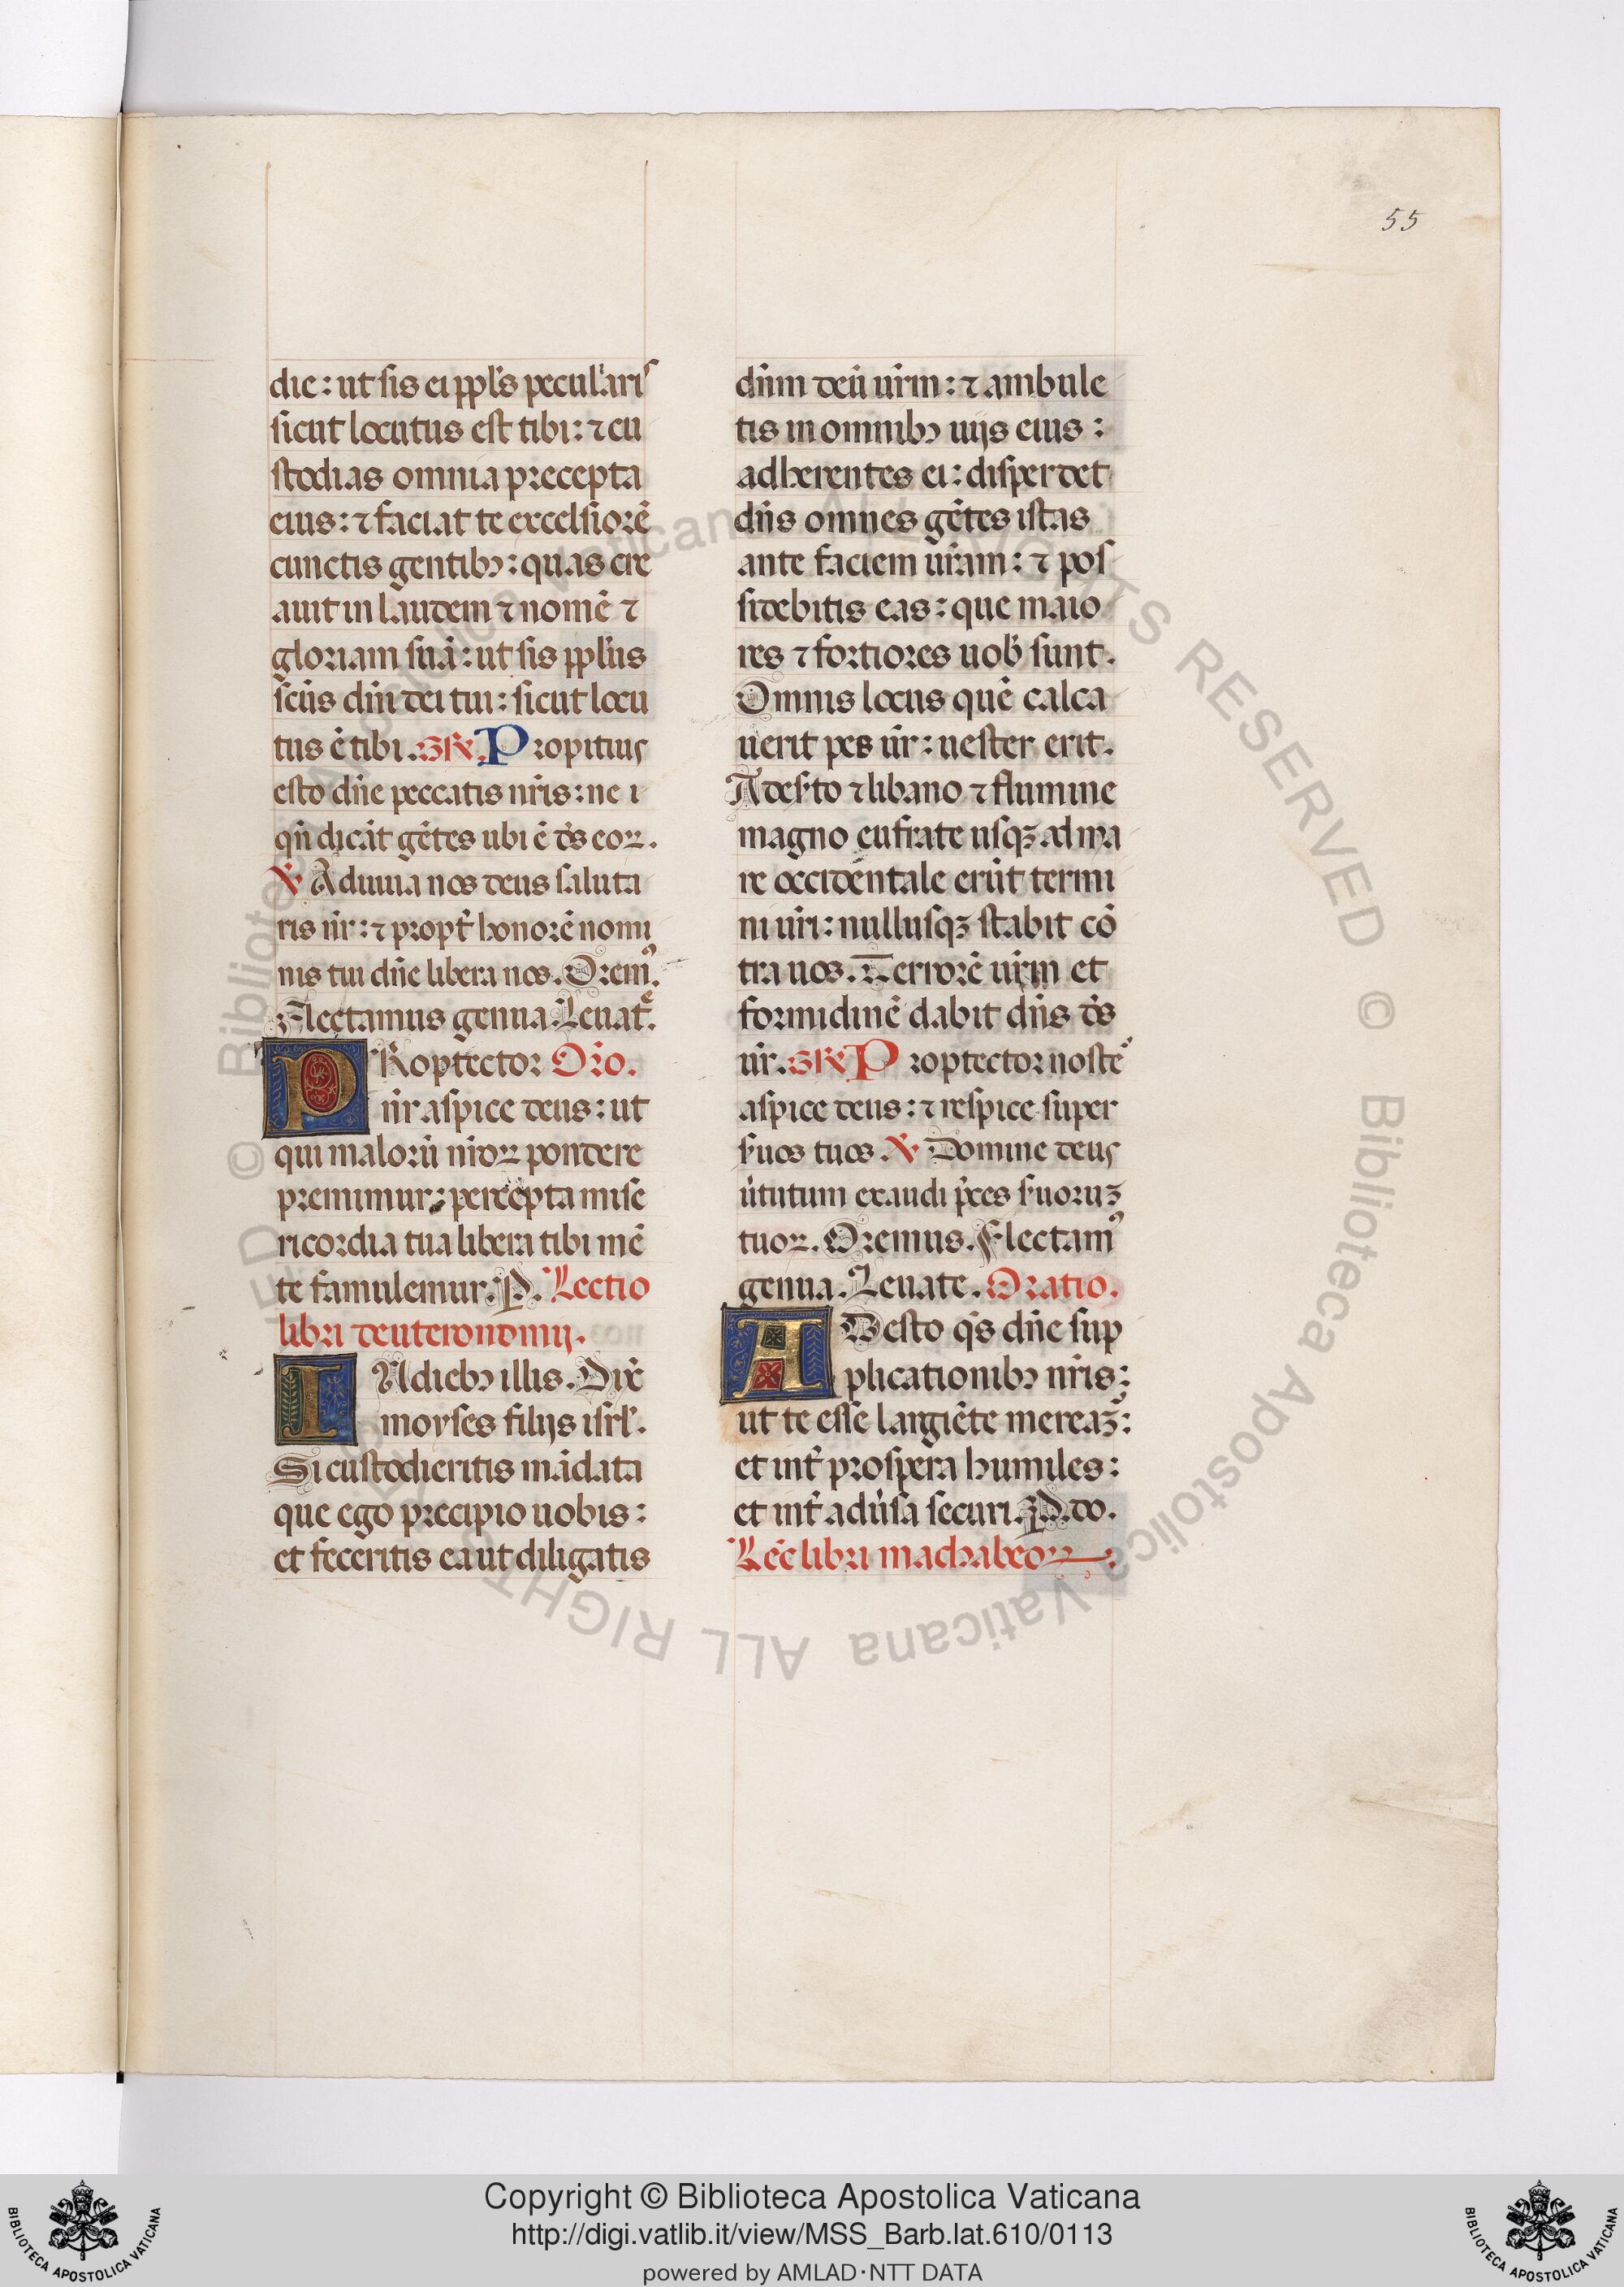 55
die: ut sis ei ppl's pecul'ari⁹
sicut locutus est tibi: ⁊ cu
stodias omnia precepta
eius: ⁊ faciat te excelsiorē
cunctis gentibꝫ: quas cre
auit in laudem ⁊ nomē ⁊
gloriam suā: ut sis ppl'us
sc̄us dn̄i dei tui: sicut locu
tus ē tibi. Gr̄. Propitius
esto dn̄e peccatis nr̄is: ne i
qn̄ dicāt gētes ubi ē d̄s eoꝝ.
℣ Adiuua nos deus saluta
ris nr̄: ⁊ propt̄ honorē nomi
nis tui dn̄e libera nos. Orem⁹.
Flectamus genua. Leuatē.
PRoptector Or̄o.
nr̄ aspice deus: ut
qui malorū nr̄oꝝ pondere
premimur: percepta mise
ricordia tua libera tibi mē
te famulemur. P. Lectio
libri deuteronomij.
IN diebꝫ illis. Dix̄
moyses filijs isrl'.
Si custodieritis mādata
que ego precipio uobis:
et feceritis ea ut diligatis
dn̄m deū ur̄m: ⁊ ambule
tis in omnibꝫ uijs eius:
adherentes ei: disperdet
dn̄s omnes gētes istas
ante faciem ur̄am: ⁊ pos
sidebitis eas: que maio
res ⁊ fortiores uob' sunt.
Omnis locus quē calca
uerit pes ur̄: uester erit.
A des'to ⁊ libano ⁊ flumine
magno eufrate usqꝫ ad ma
re occidentale erūt termi
ni ur̄i: nullusqꝫ stabit cō
tra uos. Terrorē ur̄m et
formidinē dabit dn̄s d̄s
ur̄. Gr̄ Proptector noste᷑
aspice deus: ⁊ respice super
s'uos tuos. ℣ Domine deus
u'tutum exaudi p̄ces s'uoruꝫ
tuoꝝ. Oremus. Flectam⁹
genua. Leuate. Oratio.
ADesto q̄s dn̄e sup
plicationibꝫ nr̄is:
ut te esse largiēte mereaꝫ᷑:
et int̄ prospera humiles:
et int̄ adu'sa securi. P. do.
Lec̄ libri machabeoꝝ.
© Biblioteca Apostolica Vaticana ALL RIGHTS RESERVED
© Biblioteca Apostolica Vaticana ALL RIGHTS RESERVED
Copyright © Biblioteca Apostolica Vaticana
http://digi.vatlib.it/view/MSS_Barb.lat.610/0113
powered by AMLAD·NTT DATA
BIBLIOTECA APOSTOLICA VATICANA
BIBLIOTECA APOSTOLICA VATICANA